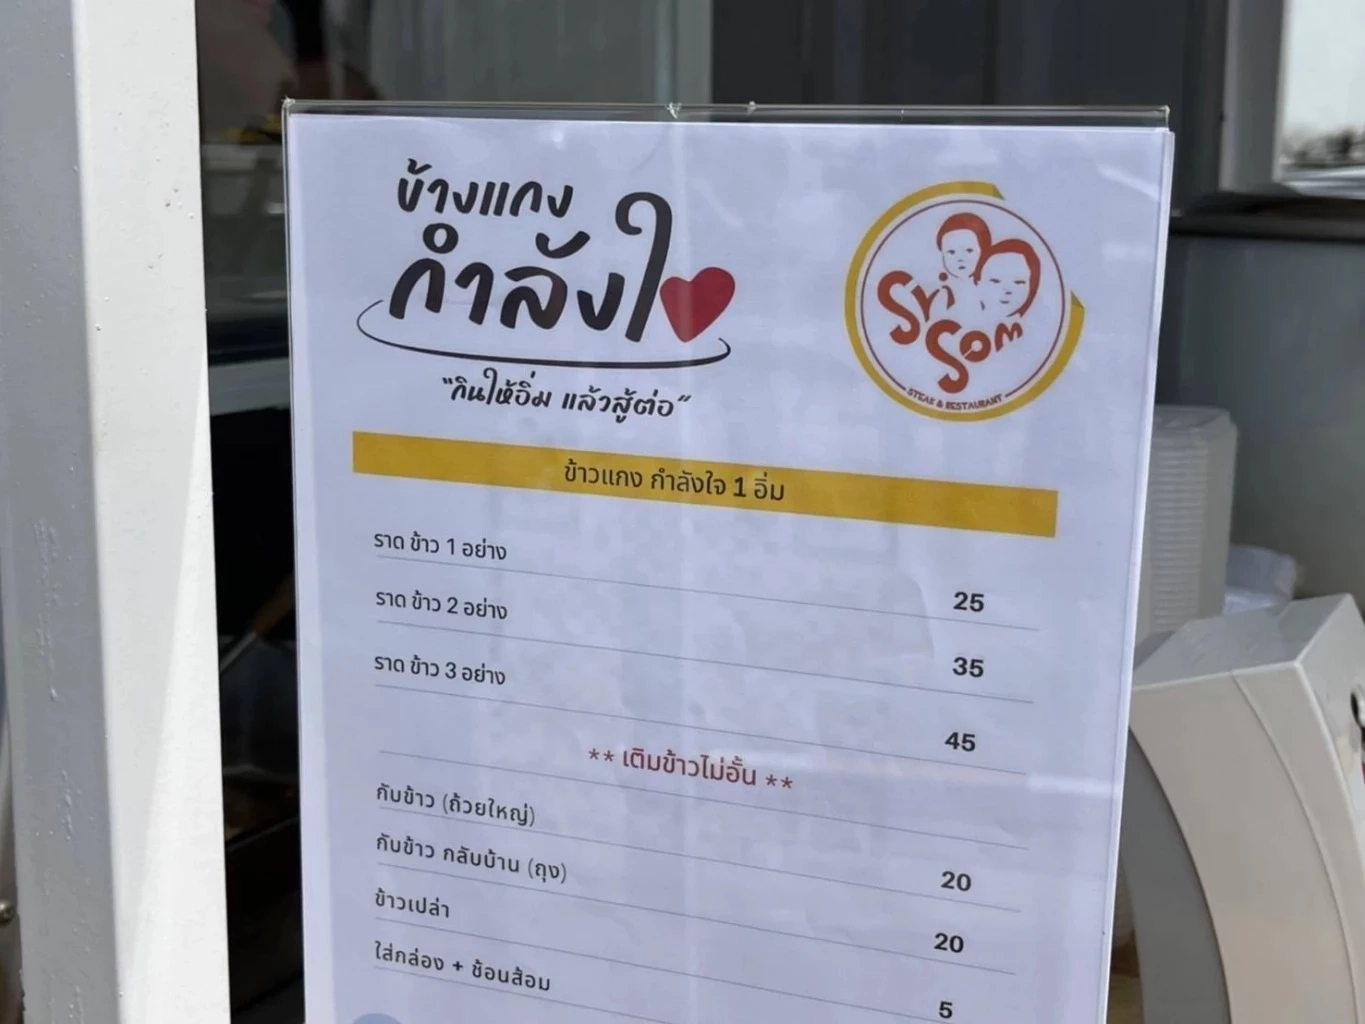 ข้างแกง
กำลังใ
"กินให้อิ่ม แล้วสู้ต่อ"
Sri
Som
STEAK & RESTAURANT
ข้าวแกง กำลังใจ 1 อิ่ม
ราด ข้าว 1 อย่าง 25
ราด ข้าว 2 อย่าง 35
ราด ข้าว 3 อย่าง 45
** เติมข้าวไม่อั้น **
กับข้าว (ถ้วยใหญ่) 20
กับข้าว กลับบ้าน (ถุง) 20
ข้าวเปล่า 5
ใส่กล่อง + ช้อนส้อม